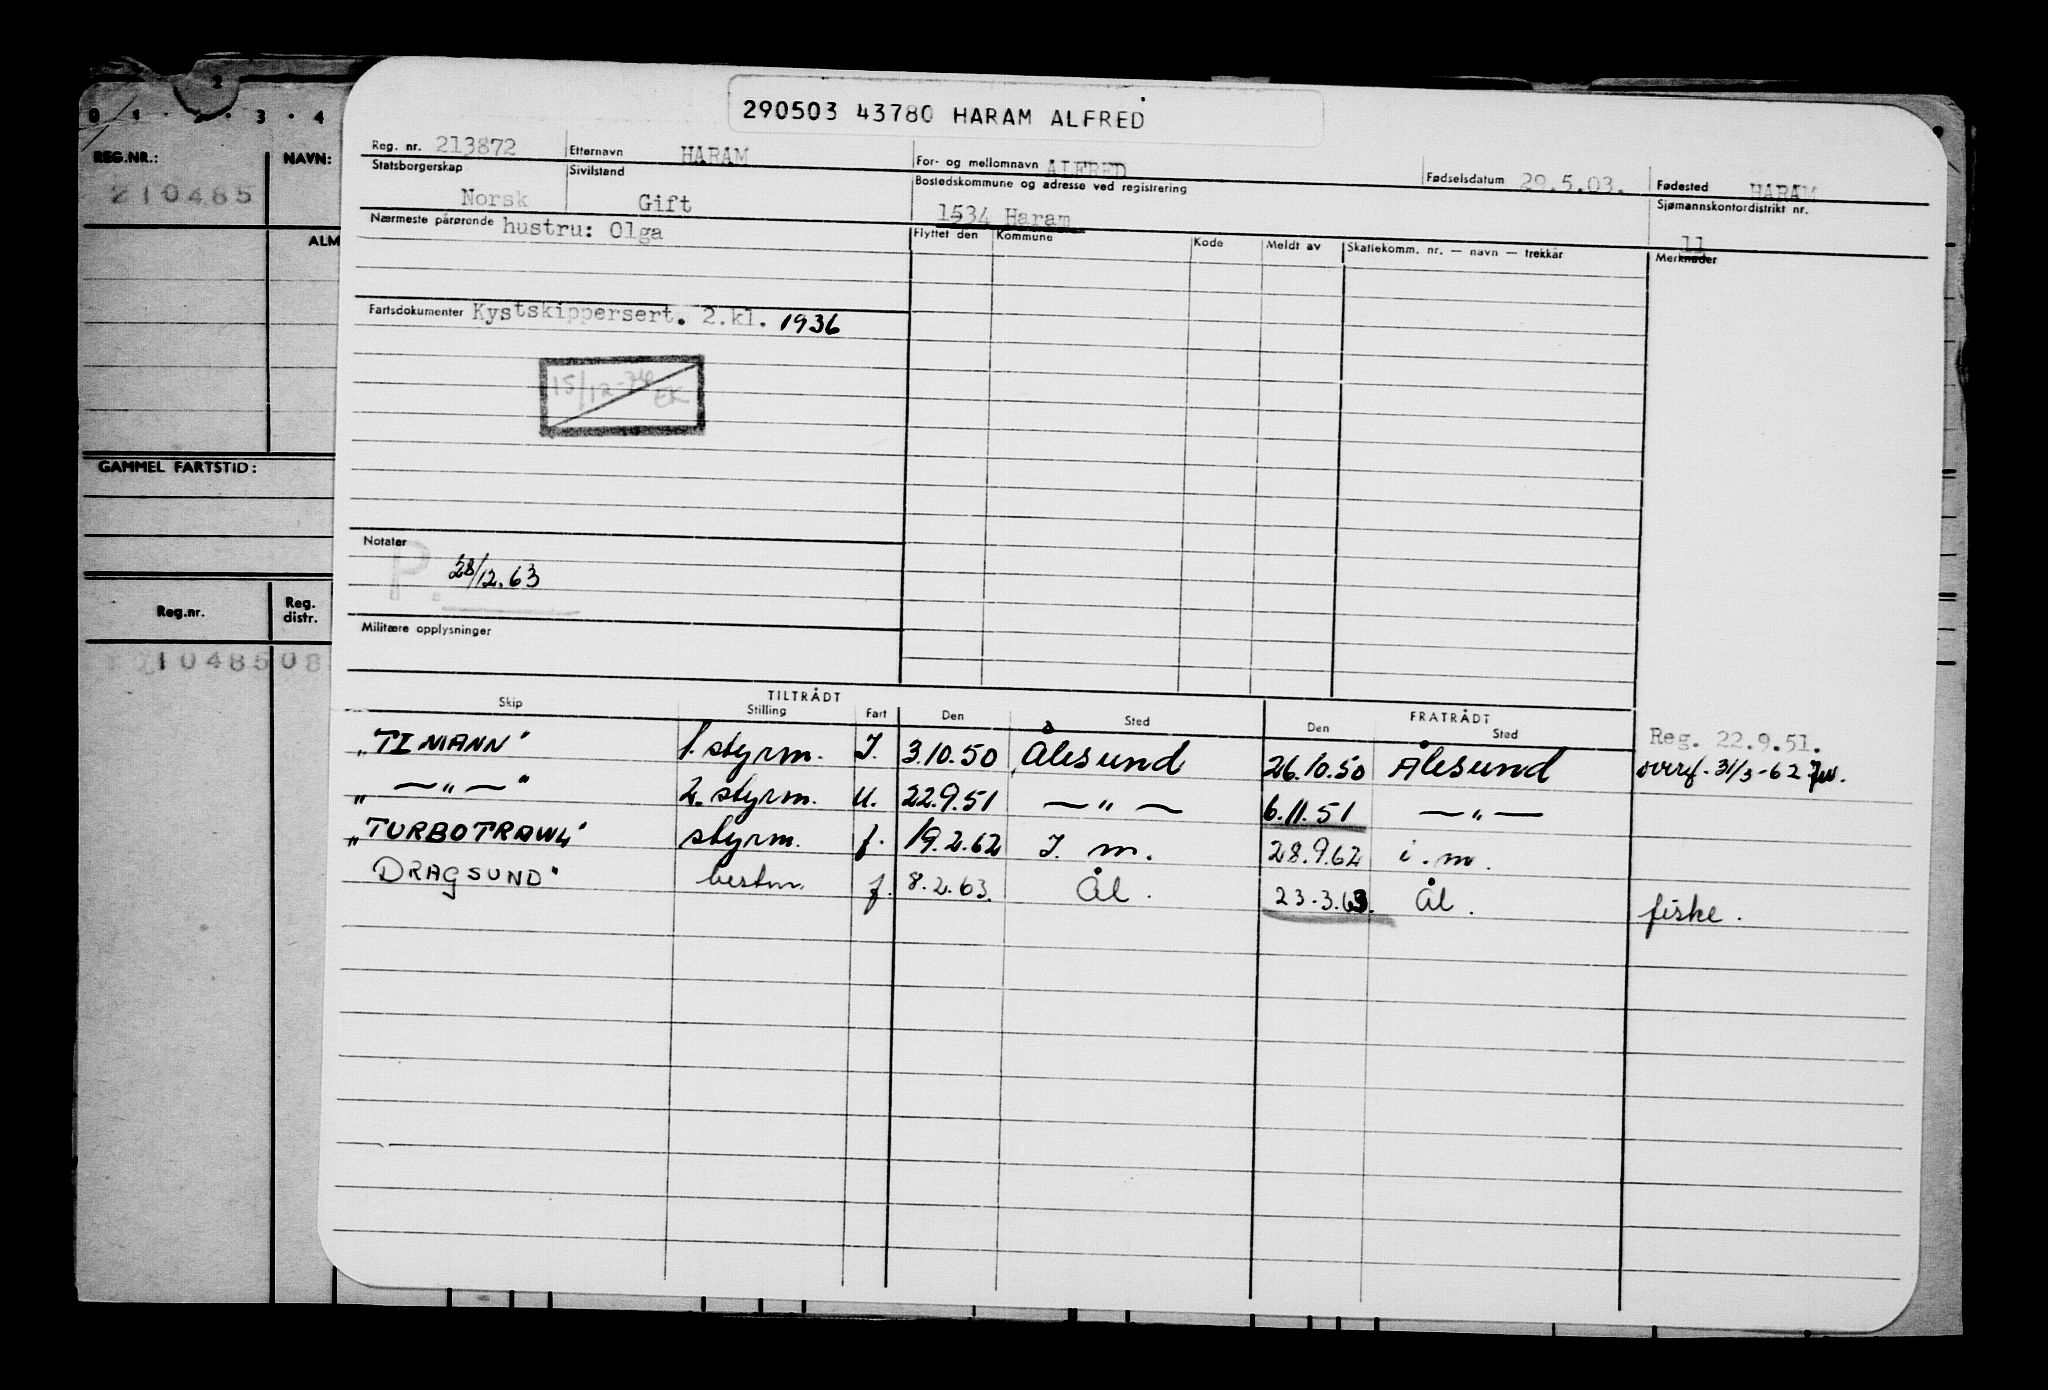 290503 43780 HARAM ALFRED
0 1 · 2 · 3 · 4
2
REG.NR.: NAVN:
210485
ALM
GAMMEL FARTSTID:
Reg.nr. Reg. distr.
210485 08
Reg. nr. 213872 Etternavn HARAM For- og mellomnavn ALFRED Fødselsdatum 29.5.03. Fødested HARAM
Statsborgerskap Norsk Sivilstand Gift Bostedskommune og adresse ved registrering 1534 Haram Sjømannskontordistrikt nr. 11
Nærmeste pårørende hustru: Olga Flyttet den Kommune Kode Meldt av Skattekomm. nr. — navn — trekkår Merknader
Fartsdokumenter Kystskippersert. 2.kl. 1936
15/12-76 EK
Notater
P. 28/12.63
Militære opplysninger
TILTRÅDT FRATRÅDT
Skip Stilling Fart Den Sted Den Sted
Reg. 22.9.51.
"TIMANN" 1. styrm. I. 3.10.50 Ålesund 26.10.50 Ålesund overf. 31/3-62
" — " — " 2. styrm. U. 22.9.51 — " — 6.11.51 — " —
"TURBOTRAWL" styrm. f. 19.2.62 I. m. 28.9.62 i. m.
DRAGSUND" bestm. f. 8.2.63. Ål. 23.3.63. Ål. fiske.